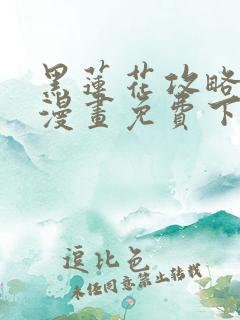 黑蓮花攻略
漫畫免費下
逗比色
未任同意禁止转载